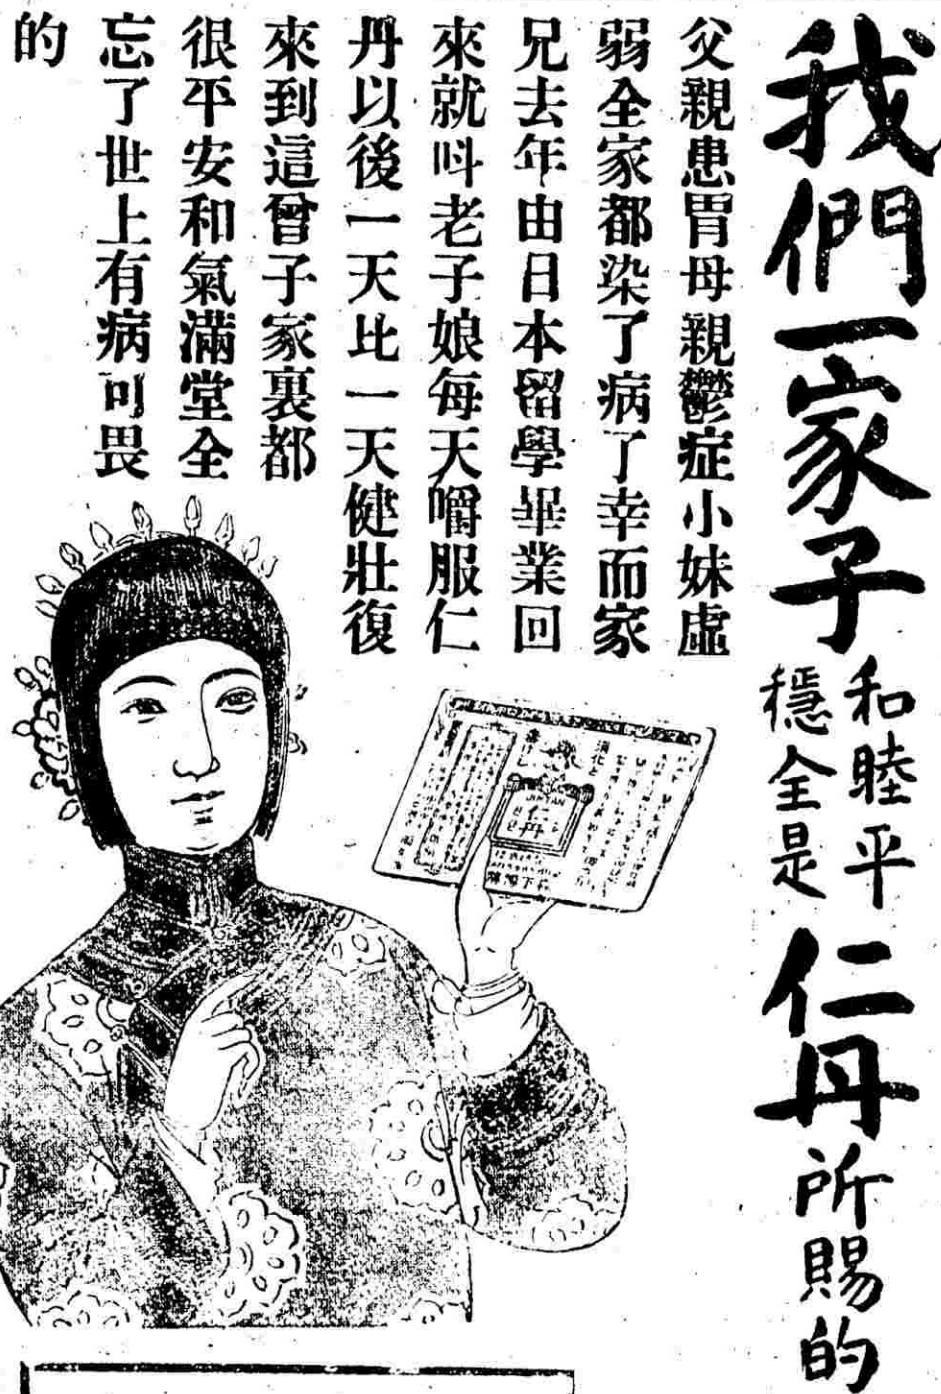 我們一家子
和睦平
穩全是
仁丹所賜的
父親患胃母親鬱症小妹虛
弱全家都染了病了幸而家
兄去年由日本留學畢業回
來就呌老子娘每天嚼服仁
丹以後一天比一天健壯復
來到這曾子家裏都
很平安和氣滿堂全
忘了世上有病可畏
的
JINTAN
仁丹